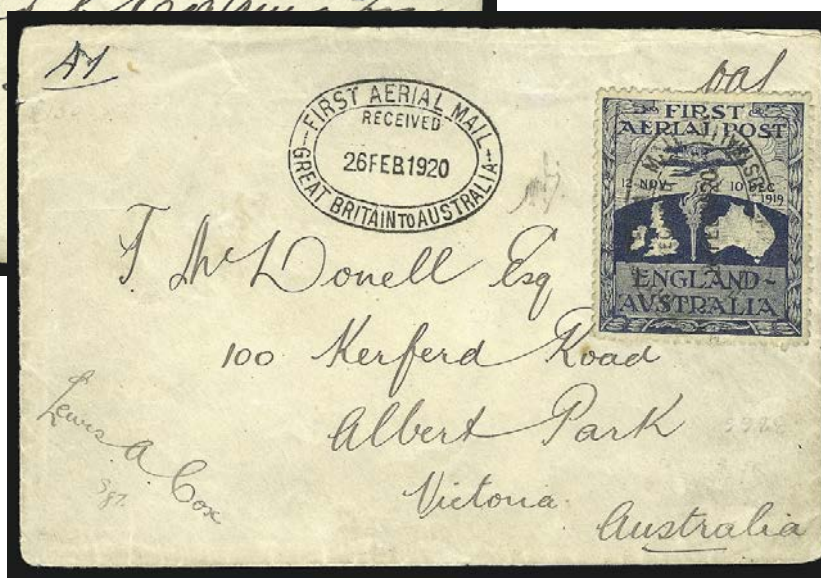 A1
FIRST AERIAL MAIL
RECEIVED
26 FEB 1920
GREAT BRITAIN TO AUSTRALIA
FIRST
AERIAL POST
12 NOV 10 DEC
1919
ENGLAND-
AVSTRALIA
F. McDonell Esq
100 Kerferd Road
Albert Park
Victoria.
Australia
Lewis A. Cox